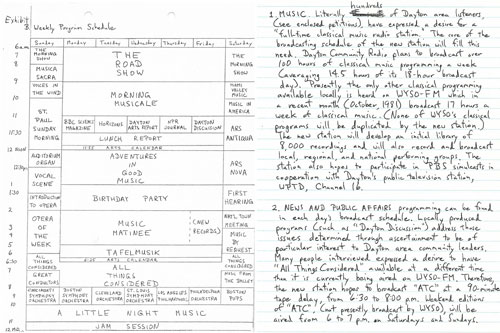 Exhibit
B Weekly Program Schedule
Sunday Monday Tuesday Wednesday Thursday Friday Saturday
THE MORNING SHOW
MUSICA SACRA
THE ROAD SHOW
THE MORNING SHOW
VOICES IN THE WIND
MORNING MUSICALE
MIAMI VALLEY MUSIC
MUSIC IN AMERICA
ST. PAUL SUNDAY MORNING
BBC SCIENCE MAGAZINE
HORIZONS
DAYTON ARTS REPORT
NPR JOURNAL
DAYTON DISCUSSION
LUNCH REPORT
ARS ANTIQUA
11:55 ARTS CALENDAR
AUDITORIUM ORGAN
ADVENTURES IN GOOD MUSIC
ARS NOVA
VOCAL SCENE
INTRODUCTION TO OPERA
BIRTHDAY PARTY
FIRST HEARING
OPERA OF THE WEEK
MUSIC MATINEE
(NEW RECORDS)
ARTS, TOWN MEETING
MUSIC BY REQUEST
TAFELMUSIK
ARTS CALENDAR
ALL THINGS CONSIDERED
ALL THINGS CONSIDERED
ALL THINGS CONSIDERED
GREAT CONDUCTORS
CINCINNATI SYMPHONY ORCHESTRA
BOSTON SYMPHONY ORCHESTRA
CLEVELAND ORCHESTRA
ST. LOUIS SYMPHONY ORCHESTRA
LOS ANGELES PHILHARMONIC
PHILADELPHIA ORCHESTRA
BOSTON POPS
A LITTLE NIGHT MUSIC
JAM SESSION
hundreds
1. MUSIC. Literally of Dayton area listeners,
(see enclosed petitions) have expressed a desire for a
"full-time classical music radio station." The core of the
broadcasting schedule of the new station will fill this
need. Dayton Community Radio plans to broadcast over
100 hours of classical music programming a week
(averaging 14.5 hours of its 18-hour broadcast
day). Presently the only other classical programming
available locally is heard on WYSO-FM which in
a recent month (October, 1981) broadcast 17 hours a
week of classical music. (None of WYSO's classical
programs will be duplicated by the new station.)
The new station will develop an initial library of
8,000 recordings and will also record and broadcast
local, regional, and national performing groups. The
station also hopes to participate in PBS simulcasts in
cooperation with Dayton's public television station,
WPTD, Channel 16.
2. NEWS AND PUBLIC AFFAIRS programming can be found
in each day's broadcast schedule. Locally produced
programs (such as "Dayton Discussion") address those
issues determined through ascertainment to be of
particular interest to Dayton area community leaders.
Many people interviewed expressed a desire to have
"All Things Considered" available at a different time
than it is currently being aired on WYSO-FM. Therefore,
the new station hopes to broadcast "ATC" at a 90-minute
tape delay, from 6:30 to 8:00 p.m. Weekend editions
of "ATC", (not presently broadcast by WYSO), will be
aired from 6 to 7 p.m. on Saturdays and Sundays.